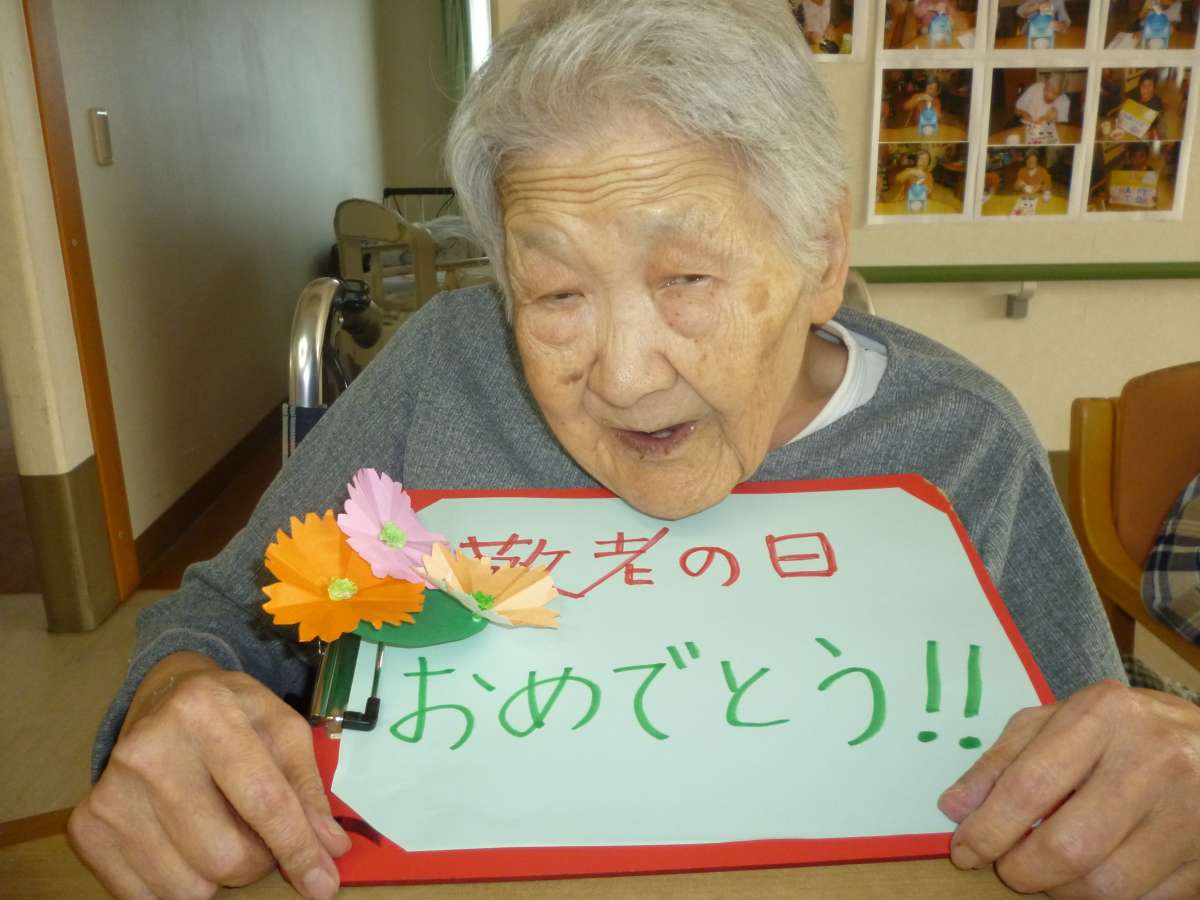 敬老の日
おめでとう!!